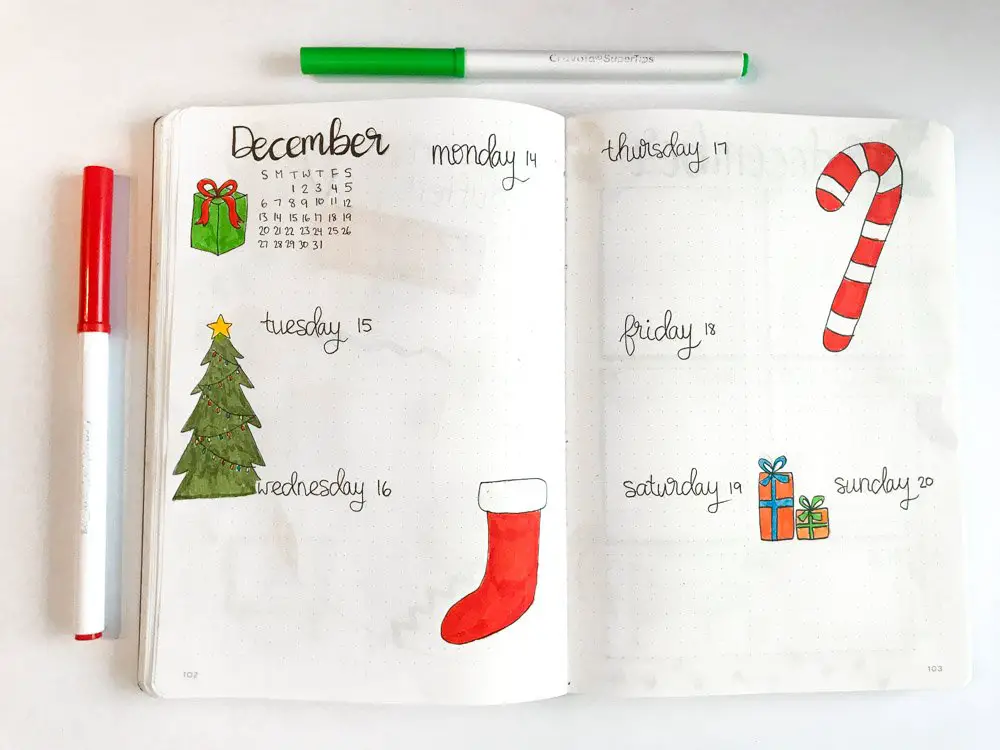 Crayola SuperTips
December
S M T W T F S
1 2 3 4 5
6 7 8 9 10 11 12
13 14 15 16 17 18 19
20 21 22 23 24 25 26
27 28 29 30 31
monday 14
tuesday 15
wednesday 16
102
thursday 17
friday 18
saturday 19
sunday 20
103